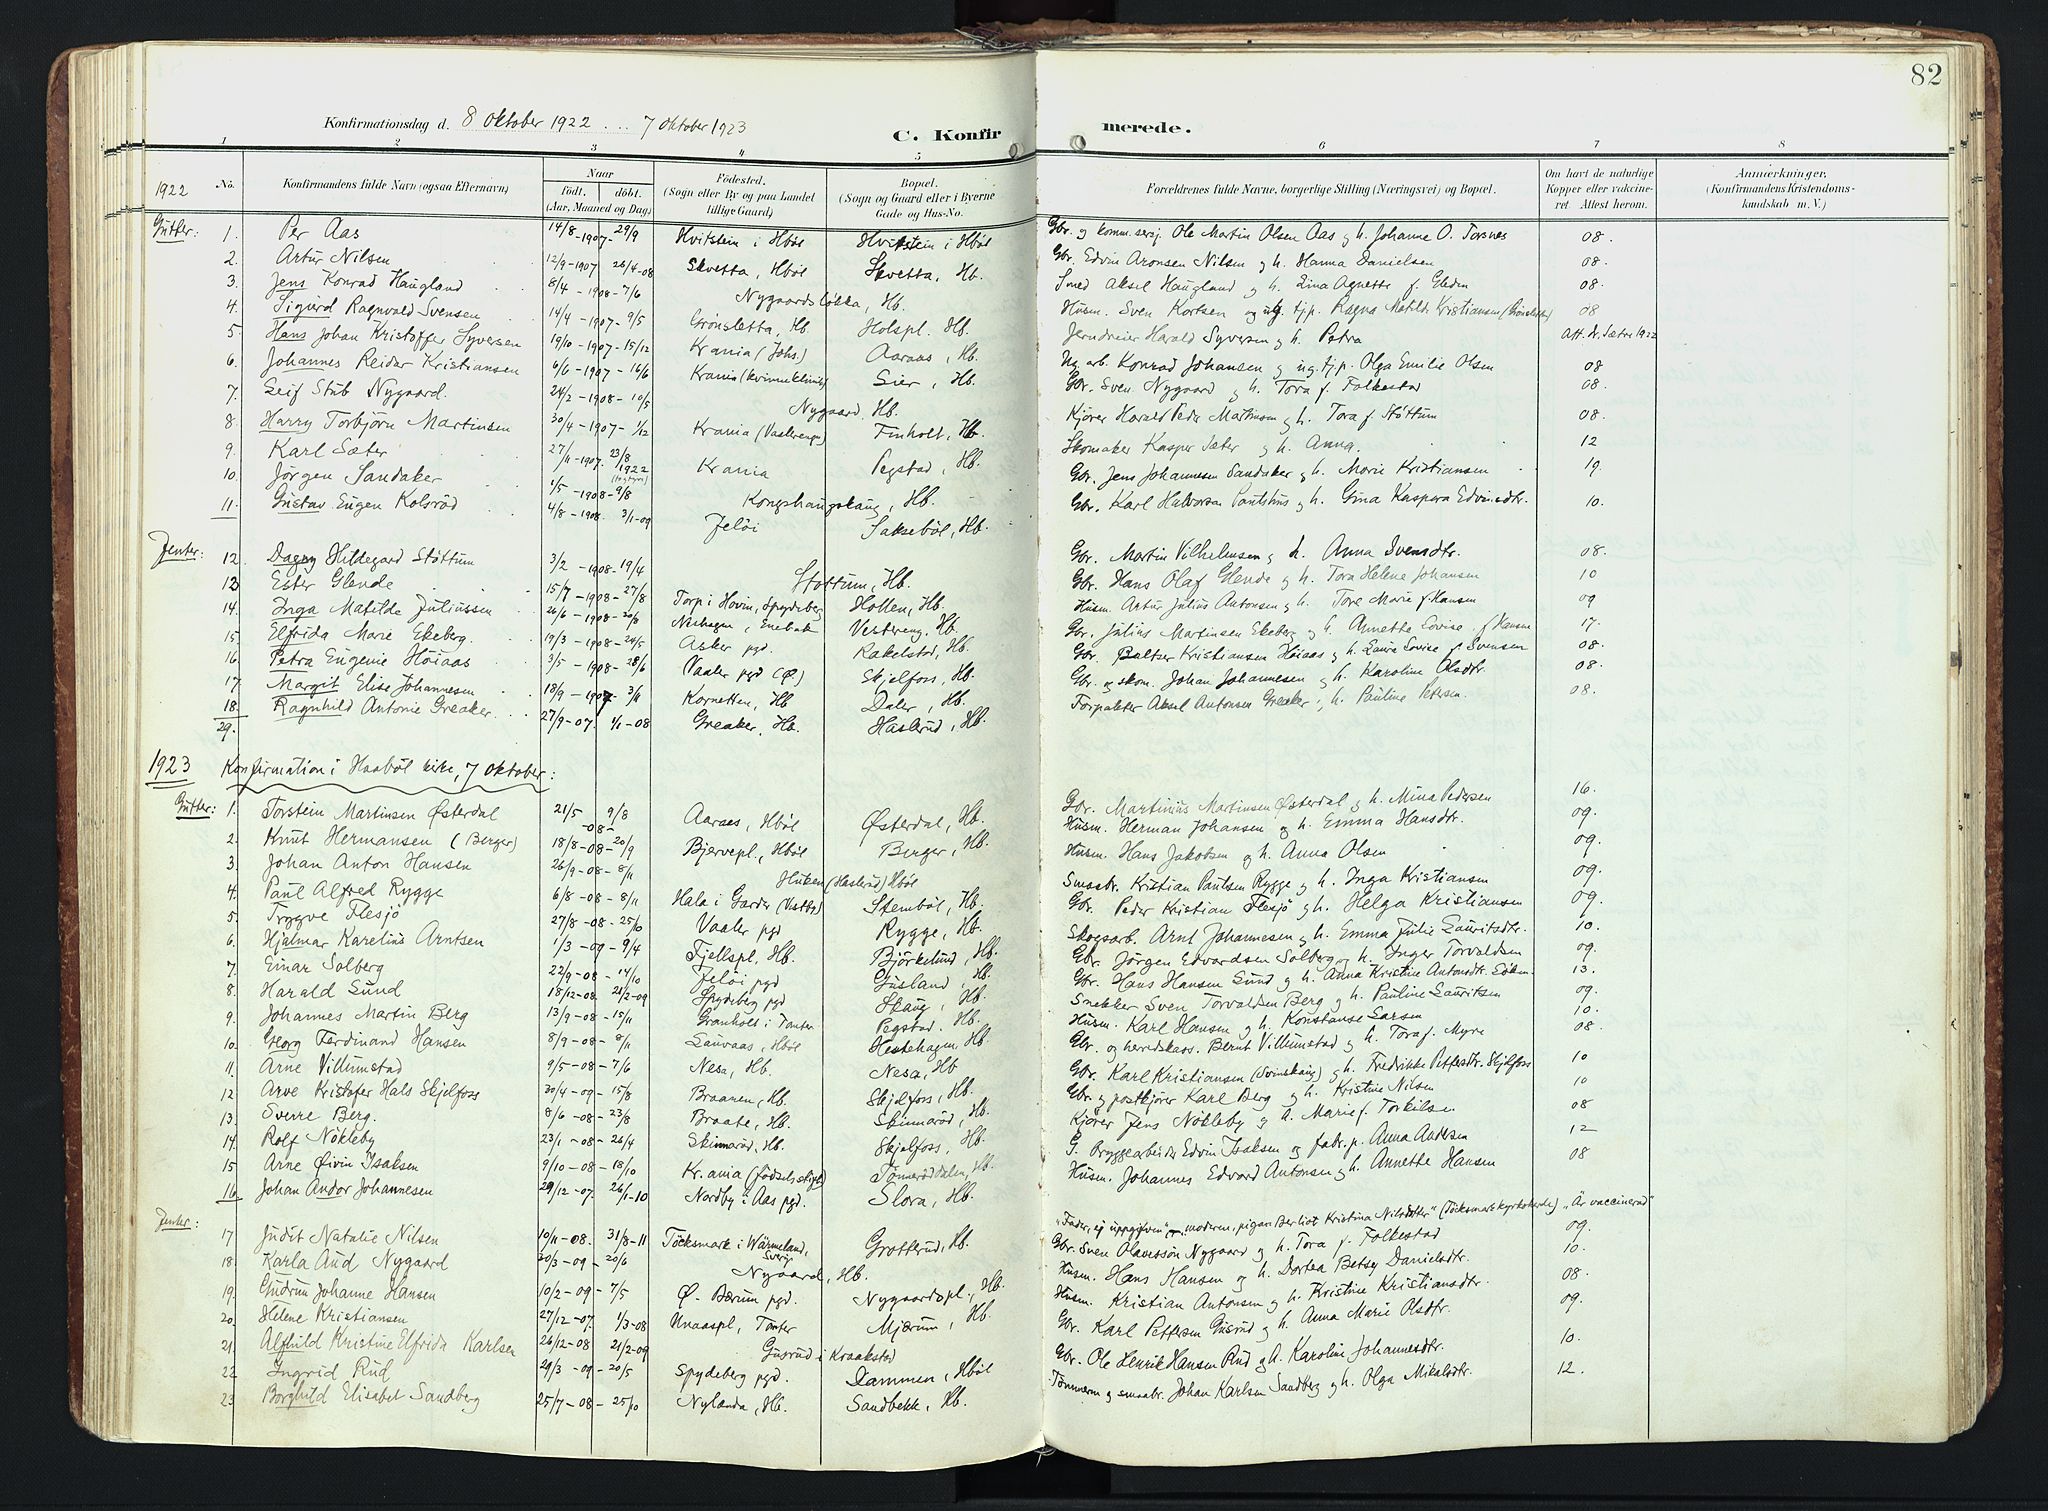 82
Konfirmationsdag d. 8 oktober 1922 ... 7 oktober 1923 C. Konfir merede.
1 2 3 4 5 6 7 8
1922 No. Konfirmandens fulde Navn (ogsaa Efternavn) Naar födt. döbt. (Aar, Maaned og Dag) Födested. (Sogn eller By og paa Landet tillige Gaard) Bopæl. (Sogn og Gaard eller i Byerne Gade og Hus-No. Forældrenes fulde Navne, borgerlige Stilling (Næringsvei) og Bopæl. Om havt de naturlige Kopper eller vakcineret. Attest herom. Anmærkninger. (Konfirmandens Kristendomskundskab m. V.)
Gutter: 1. Per Aas 14/8 - 1907 - 29/9 Hvitstein i Hböl Hvitstein i Hböl Gbr. og komm.sersj. Ole Martin Olsen Aas og h. Johanne O. Torsnes 08.
2. Artur Nilsen 12/9 - 1907 26/4-08 Skvetta, Hböl Skvetta, Hb. Gbr. Edvin Aronsen Nilsen og h. Hanna Danielsen 08.
3. Jens Konrad Haugland 8/4 - 1908 - 7/6 Nygaardsløkka, Hb. Smed Aksel Haugland og h. Lina Agnette f. Gleden 08.
4. Sigurd Ragnvald Svensen 14/4 - 1907 - 9/5 Grønsletta, Hb. Holspl. Hb. Husm. Sven Kortsen og ug. tjp. Ragna Matilde Kristiansen (Grønsletta) 08
5. Hans Johan Kristoffer Syversen 19/10 - 1907 - 15/12 Krania (Johs.) Aaraas, Hb. Jerndreier Harald Syversen og h. Petra Att. dr. Sætre 1922
6. Johannes Reidar Kristiansen 6/6 - 1907 - 16/6 Krania (kvinneklinik) Sier, Hb. Ug. arb. Konrad Johansen og ug. tj.p. Olga Emilie Olsen 08
7. Leif Stub Nygaard. 24/2 - 1908 - 10/5 Nygaard, Hb. Gbr. Sven Nygaard og h. Tora f. Folkestad 08.
8. Harry Torbjørn Martinsen 30/4 - 1907 - 1/12 Krania (Vaalerengn) Finholt, Hb. Kjører Harald Peder Martinsen og h. Tora f. Støttum 08.
9. Karl Sæter 27/11 - 1907. 23/8 1922 Krania Pegstad, Hb. Skomaker Kasper Sæter og h. Anna. 12
10. Jørgen Sandaker 1/5 - 1908 - 9/8 Kongshaugskaug, Hb. Gbr. Jens Johannesen Sandaker og h. Marie Kristiansen 19.
11. Gustav Eugen Kolsrød 4/8 - 1908. 3/1-09 Jeløi Saksebøl, Hb. Gbr. Karl Halvorsen og h. Gina Kaspera Edvinsdtr. 10.
Jenter: 12. Dagny Hildegard Støttum 3/2 - 1908 - 19/4 Støttum, Hb. Gbr. Martin Vilhelmsen og h. Anna Svensdtr. 08.
13 Ester Glende 15/7 - 1908 - 27/8 Torp i Hovin, Spydeberg Hollen, Hb. Gbr. Hans Olaf Glende og h. Tora Helene Johansen 10
14. Inga Matilde Juliussen 26/6 - 1908 - Enebak Vestereng, Hb. Husm. Artur Julius Antonsen og h. Tore Marie f. Hansen 09
15. Elfrida Marie Ekeberg. 19/3 - 1908 - 24/5 Asker pgd. Rakelstad, Hb. Gbr. Julius Martinsen Ekeberg og h. Annette Lovise f. Hansen 17.
16. Petra Eugenie Höiaas 3/5 - 1908 - 28/6 Vaaler pgd (Ø) Skjelfoss, Hb. Gbr. Baltzer Kristiansen Höiaas og h. Laura Lovise f. Svensen 08.
17. Margit Elise Johannesen 18/9 - 1907. 3/11 Kornetten, Hb Daler, Hb. Gbr. og skom. Johan Johannesen og h. Karoline Olsdtr. 08.
18. Ragnhild Antonie Greaker. 27/9 - 07. 1/1 - 08 Greaker, Hb. Haslerud, Hb Forpakter Aksel Antonsen Greaker, h. Pauline Petersen. 08.
29.
1923 Konfirmation i Haaböl kirke, 7 oktober:
Gutter: 1. Torstein Martinsen Østerdal 21/5 - 08 - 9/8 Aaraas, Hböl Østerdal, Hb. Gbr. Martinius Martinsen Østerdal og h. Mina Pedersen 16.
2. Knut Hermansen (Berger) 18/8 - 08 - 20/9 Bjervepl., Hböl Berger, Hb. Husm. Herman Johansen og h. Emma Hansdtr. 09.
3. Johan Anton Hansen 26/9 - 08 - 8/11 Huken (Haslerud) Hböl Husm. Hans Jakobsen og h. Anna Olsen 09.
4. Paul Alfred Rygge 6/8 - 08 - 8/11 Hala i Garder (Vestby) Stemböl, Hb. Smaabr. Kristian Paulsen Rygge og h. Inga Kristiansen 09.
5. Trygve Flesjö 27/8 - 08 - 25/10 Vaaler pgd Rygge, Hb. Gbr. Peder Kristian Flesjö og h. Helga Kristiansen 09.
6. Hjalmar Karelius Arntsen 1/3 - 09 - 9/4 Fjellspl, Hb. Björkelund, Hb. Skogsarb. Arnt Johannesen og h. Emma Julie Lauritsdtr. 10.
7. Einar Solberg 22/9 - 08 - 14/10 Jeløi pgd Gusland, Hb. Gbr. Jørgen Edvardsen Solberg og h. Inger Torvaldsen 09.
8. Harald Sund 18/12 - 08. 21/2-09 Spydeberg pgd Skaug, Hb. Gbr. Hans Hansen Sund og h. Anna Kristine Antonsdtr. 13.
9. Johannes Martin Berg 13/9 - 08 - 15/11 Granholt i Tomter Pegstad, Hb. Snekker Sven Torvaldsen Berg og h. Pauline Lauritsen 09.
10. Georg Ferdinand Hansen 8/9 - 08 - 8/11 Lauvaas, Hböl Hestehagen, Hb Husm. Karl Hansen og h. Konstanse Larsen 10.
11. Arne Villumstad 9/5 - 08 - 7/6 Nesa, Hb. Nesa, Hb Gbr. og herredskass. Bernt Villumstad og h. Tora f. Myre 08.
12 Arve Kristofer Hals Skjelfoss 30/4 - 09 - 15/8 Braanen, Hb. Skjelfoss, Hb. Gbr. Karl Kristiansen (Svinskaug) og h. Fredrikke Pettersdtr. Skjelfoss 10
13. Sverre Berg. 8/6 - 08 - 23/8 Braate, Hb. Skinnarød, Hb. Gbr. og postkjører Karl Berg og h. Kristine Nilsen 10
14. Rolf Nökleby 23/1 - 08 - 26/4 Skinnarød, Hb. Skjelfoss, Hb. Kjører Jens Nökleby og h. Marie f. Torkilsen 08
15 Arne Øivin Isaksen 9/10 - 08 - 18/10 Kr.ania (fødselsstift) Tømmeråsdalen, Hb. G. Bryggearbeider Edvin Isaksen og fabr.p. Anna Andersen 12
16 Johan Andor Johannesen 29/12 - 07. 26/1-10 Nordby i Aas pgd. Slora, Hb. Husm. Johannes Edvard Antonsen og h. Annette Hansen 08
Jenter: 17 Judit Natalie Nilsen 10/11 - 08. 31/8-11 Töcksmark i Wärmeland, Sverige Grotterud, Hb. "Fader, ej uppgifven", moderen, pigan Berliot Kristina Nilsdotter" (Töcksmarks kyrkoherde) "Är vaccinerad"
18. Karla Aud Nygaard 30/3 - 09 - 20/6 Nygaard, Hb. Gbr. Sven Olavssøn Nygaard og h. Tora f. Folkestad 09.
19. Gudrun Johanne Hansen 10/2 - 09 - 7/5 Ø. Bærum pgd. Nygaardspl., Hb. Husm. Hans Hansen og h. Dortea Betsy Danielsdtr. 10.
20. Helene Kristiansen 27/12 - 07. 1/3-08 Unaaspl, Tomter Mjærum, Hb Husm. Kristian Antonsen og h. Kristine Kristiansdtr. 08
21. Alfhild Kristine Elfrida Karlsen 26/12 - 08 21/2-09 Gusrud i Kraakstad Gbr. Karl Pettersen Gusrud og h. Anna Marie Olsdtr. 09.
22. Ingrid Rud 29/3 - 09 - 20/5 Spydeberg pgd. Dammen, Hböl Gbr. Ole Henrik Hansen Rud og h. Karoline Johannesdtr. 10.
23 Borghild Elisabet Sandberg 25/7 - 08 - 25/10 Nylænda, Hb. Sandbekk, Hb. Tömmerm og smaabr. Johan Karlsen Sandberg og h. Olga Mikalsdtr. 12.